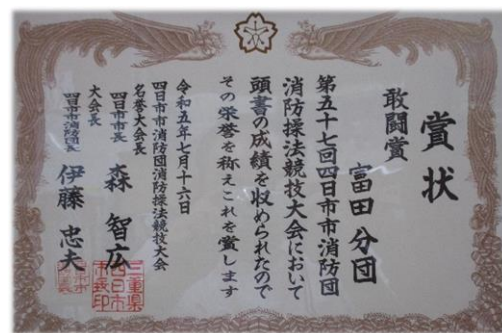 賞状
敢闘賞
富田分団
第五十七回四日市市消防団
消防操法競技大会において
頭書の成績を収められたので
その栄誉を称えこれを賞します
令和五年七月十六日
四日市市消防団消防操法競技大会
名誉大会長
四日市市長 森智広
大会長
四日市市消防団長 伊藤忠夫
三重県
四日市
市長印